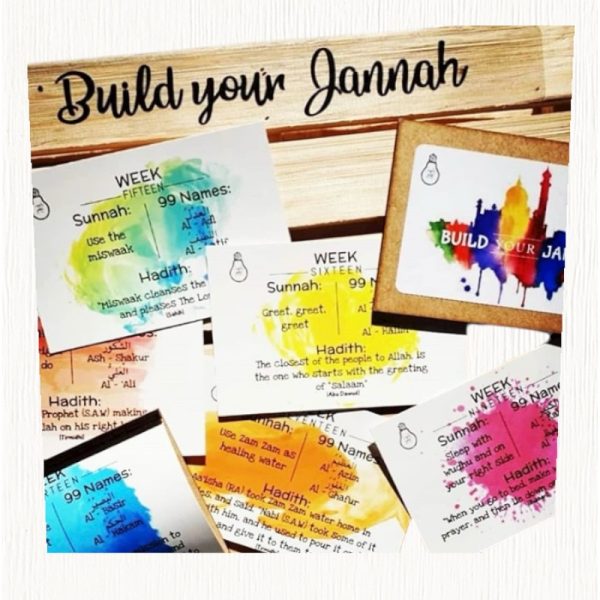 Build your Jannah
WEEK
FIFTEEN
Sunnah:
99 Names:
use the
miswaak
Al - Adl
Hadith:
"Miswaak cleanses the
and pleases The Lo
BUILD YOUR JA
WEEK
SIXTEEN
Sunnah:
99 Names:
Greet, greet,
greet
Al - Halim
Hadith:
The closest of the people to Allah, is
the one who starts with the greeting
of "salaam"
(Abu Dawud)
do
الشكور
Ash - Shakur
العلي
Al - 'Ali
Prophet (S.A.W) making
ah on his right h
(Tirmidhi)
WEEK
SEVENTEEN
use Zam Zam as
healing water
Al - Azim
Al - Ghafur
Hadith:
Aa'isha (RA) took Zam Zam water home in
s, and said "Nabi (S.A.W) took some of it
with him, and he used to pour it on
and give it to them t
WEEK
RTEEN
99 Names:
البصير
Al - Basir
الحكم
Al - Hakam
WEEK
NINETEEN
Sunnah:
99 Names:
Sleep with
wudhu and on
your right side
Hadith:
"when you go to bed, make
prayer, and then lie down o